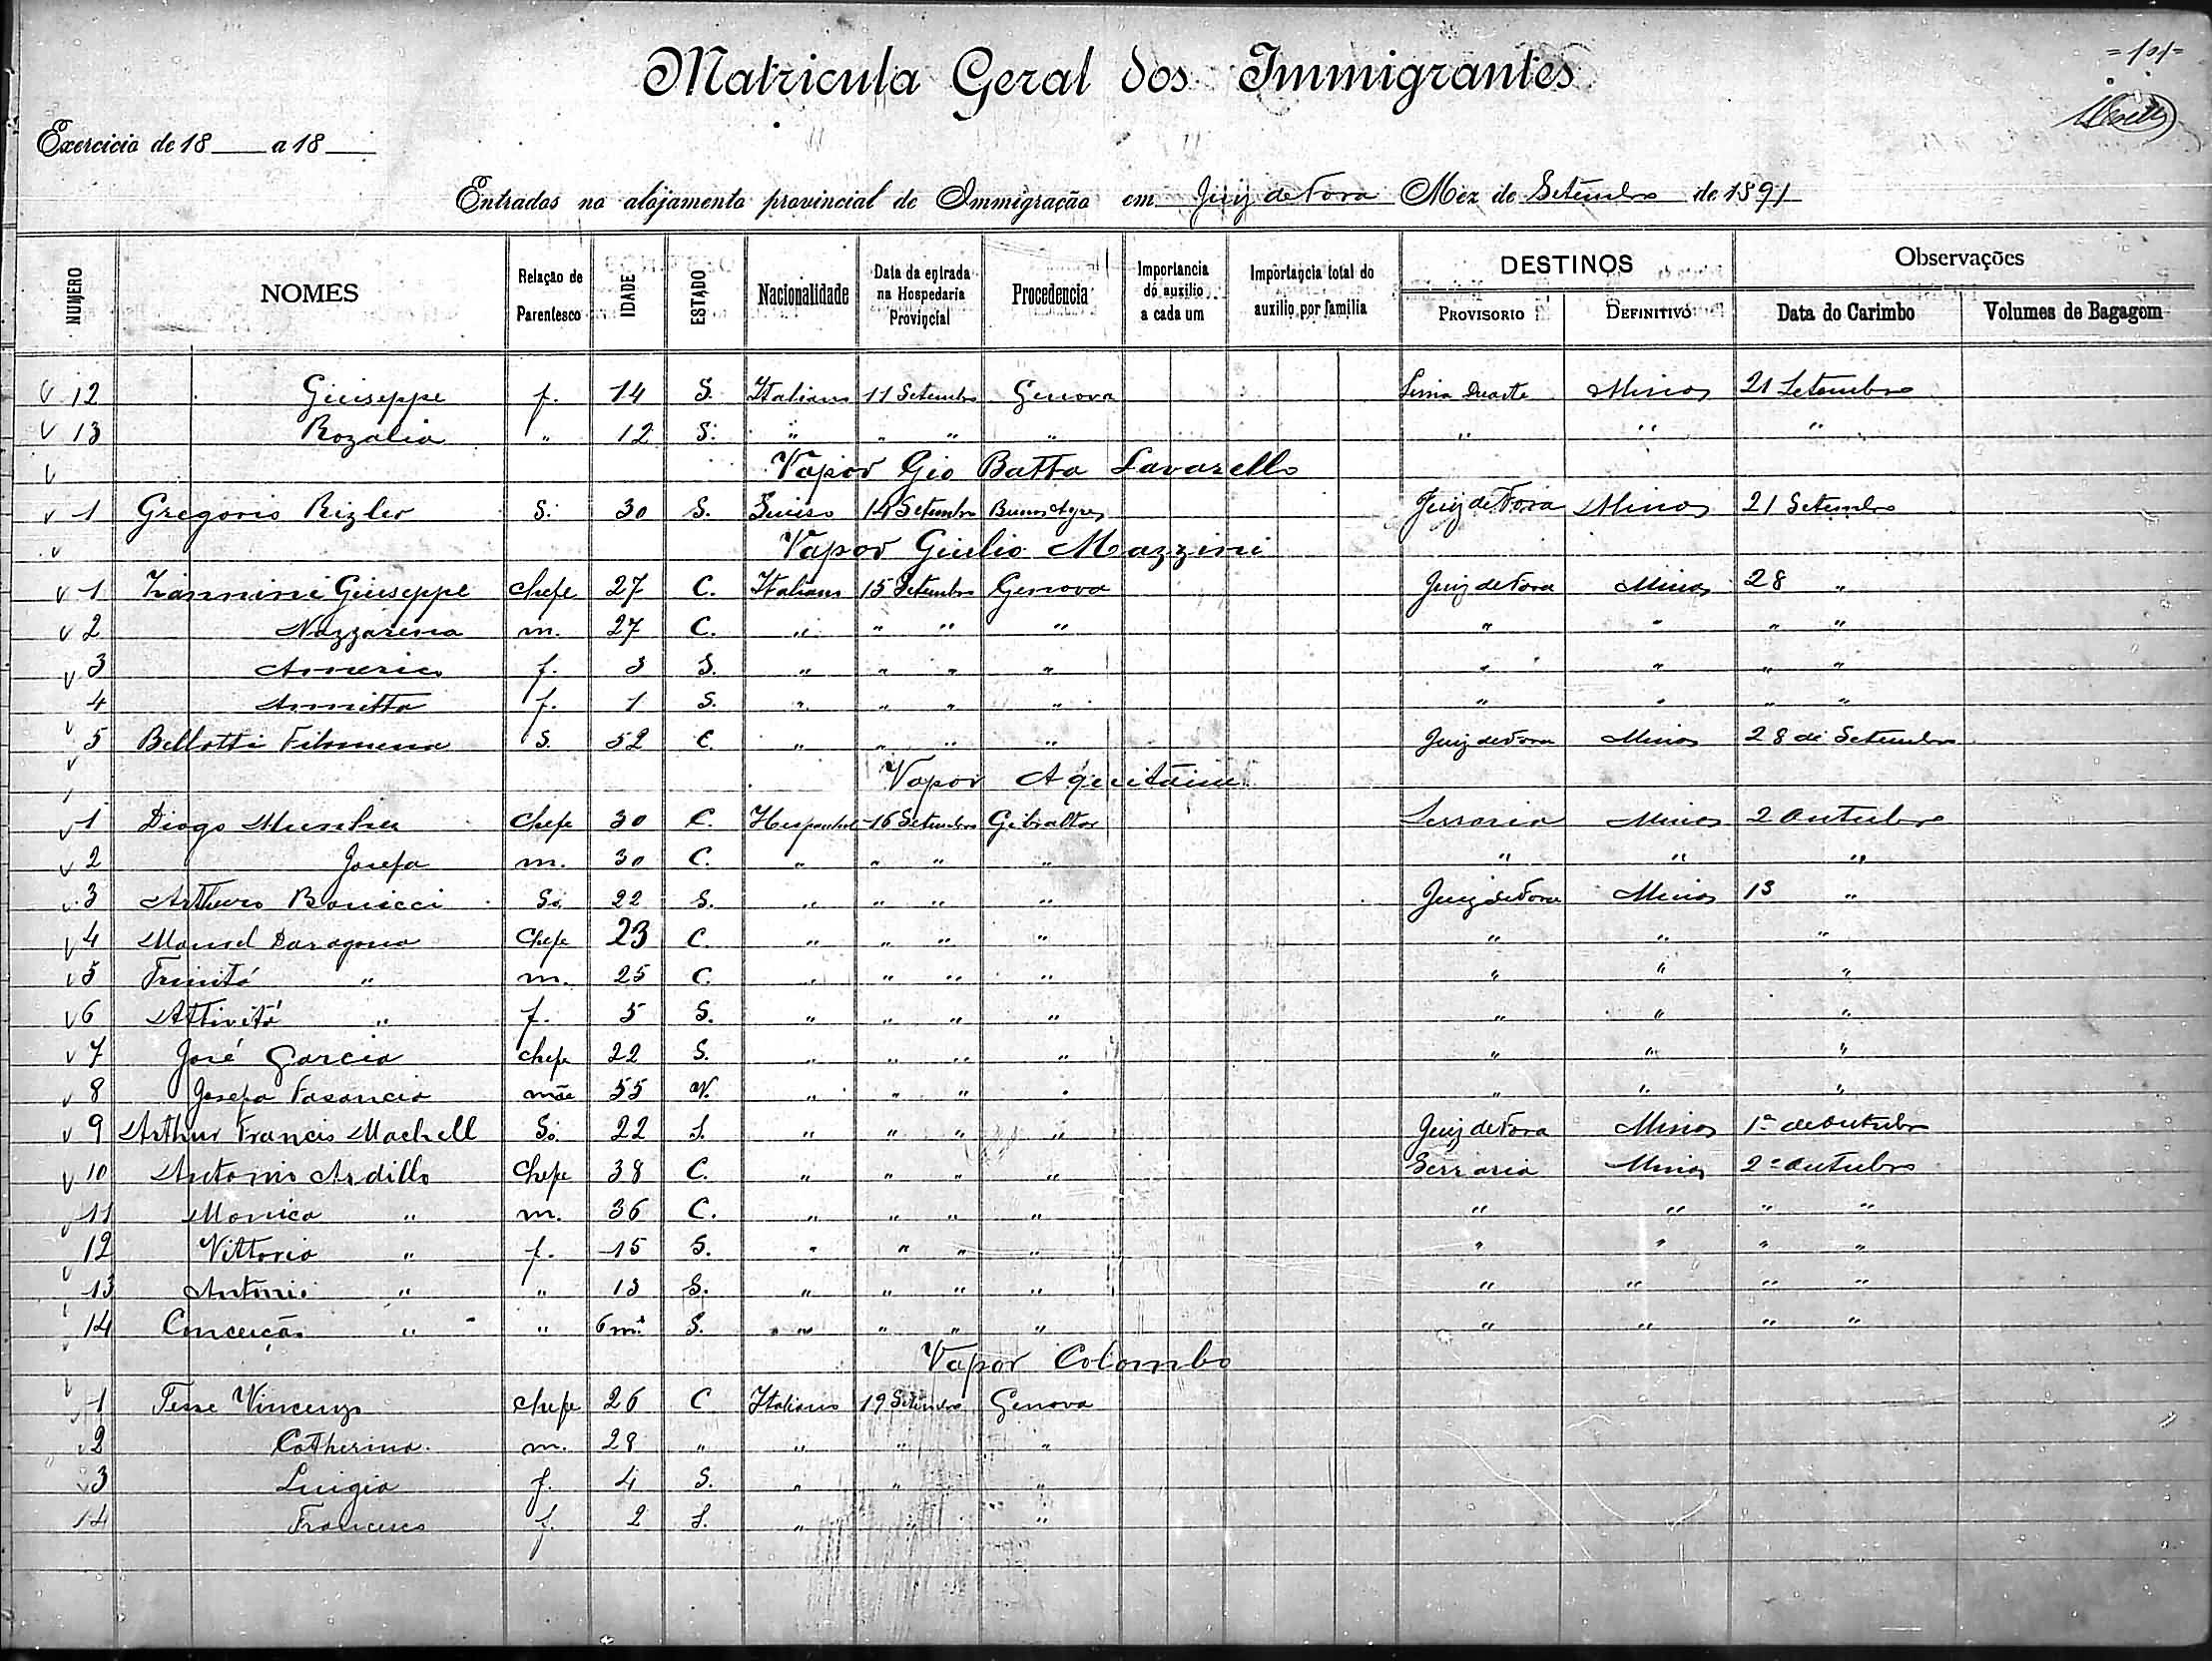 =101=
Matricula Geral dos Immigrantes
Exercicio de 18 a 18
Entrados no alojamento provincial de Immigração em Juiz de Fora Mez de Setembro de 1891
NUMERO NOMES Relação de Parentesco IDADE ESTADO Nacionalidade Data da entrada na Hospedaria Provincial Procedencia Importancia do auxilio a cada um Importancia total do auxilio por familia DESTINOS PROVISORIO DEFINITIVO Observações Data do Carimbo Volumes de Bagagem
12 Giuseppe f. 14 S. Italiano 11 Setembro Genova Lima Duarte Minas 21 Setembro
13 Rozalia " 12 S. " " " " " " "
Vapor Gio Batta Lavarello
1 Gregorio Rizler S. 30 S. Suisso 14 Setembro Buenos Ayres Juiz de Fora Minas 21 Setembro
Vapor Giulio Mazzini
1 Zannini Giuseppe chefe 27 C. Italiano 15 Setembro Genova Juiz de Fora Minas 28 "
2 Nazzarena m. 27 C. " " " " " " " "
3 Americo f. 3 S. " " " " " " " "
4 Annitta f. 1 S. " " " " " " " "
5 Bellotti Filomena S. 52 C. " " " " Juiz de Fora Minas 28 de Setembro
Vapor Aquitaine
1 Diogo Chefe 30 C. Hespanhol 16 Setembro Gibraltar Serraria Minas 2 Outubro
2 Josefa m. 30 C. " " " " " " "
3 Arthuro Bonicci Só 22 S. " " " " Juiz de Fora Minas 13 "
4 Manoel Daragona Chefe 23 C. " " " " " " "
5 Trinitá " m. 25 C. " " " " " " "
6 Attivitá " f. 5 S. " " " " " " "
7 José Garcia chefe 22 S. " " " " " " "
8 Josefa Fasancia mãe 55 V. " " " " " " "
9 Arthur Francis Machell Só 22 S. " " " " Juiz de Fora Minas 1º de Outubro
10 Antonio Ardillo Chefe 38 C. " " " " Serraria Minas 2º Outubro
11 Monica " m. 36 C. " " " " " " " "
12 Vittoria " f. 15 S. " " " " " " " "
13 Antonio " " 13 S. " " " " " " " "
14 Conceição " " 6 m. S. " " " " " " " "
Vapor Colombo
1 Tesse Vincenzo chefe 26 C. Italiano 19 Setembro Genova
2 Catherina m. 28 " " " "
3 Luigia f. 4 S. " " "
4 Francesco f. 2 S. " " "